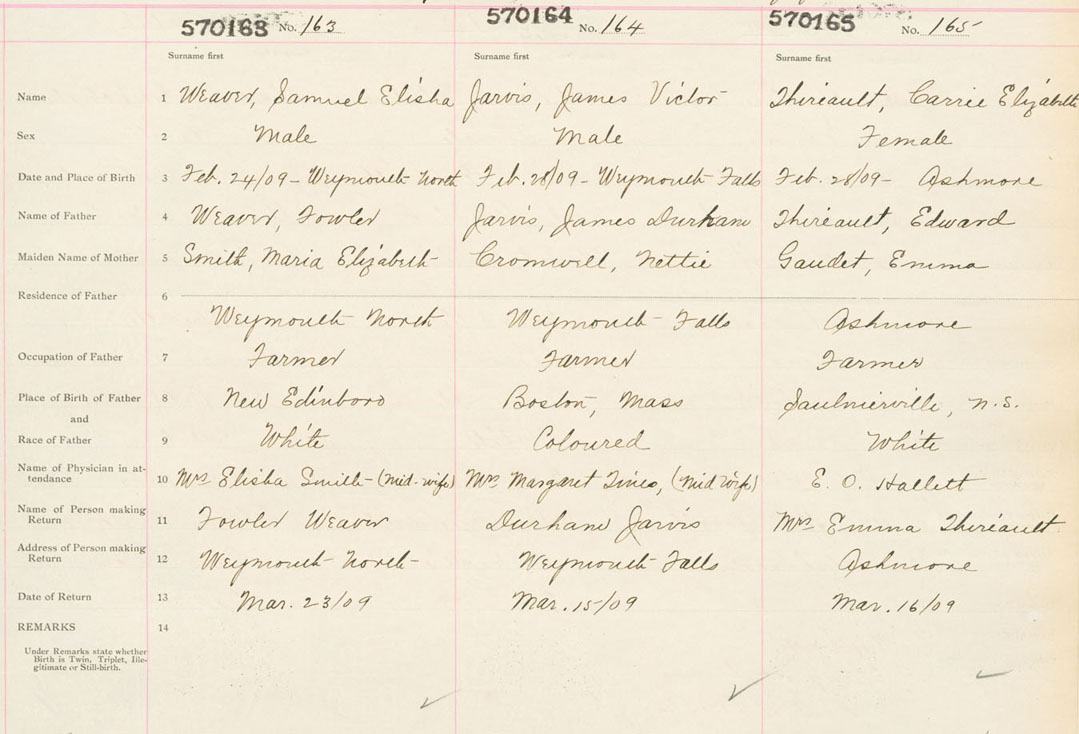 570163 No. 163 570164 No. 164 570165 No. 165
Surname first Surname first Surname first
Name 1 Weaver, Samuel Elisha Jarvis, James Victor Thiréault, Carrie Elizabeth
Sex 2 Male Male Female
Date and Place of Birth 3 Feb. 24/09 - Weymouth North Feb. 28/09 - Weymouth Falls Feb. 28/09 - Ashmore
Name of Father 4 Weaver, Fowler Jarvis, James Durham Thiréault, Edward
Maiden Name of Mother 5 Smith, Maria Elizabeth Cromwell, Nettie Gaudet, Emma
Residence of Father 6
Weymouth North Weymouth Falls Ashmore
Occupation of Father 7 Farmer Farmer Farmer
Place of Birth of Father 8 New Edinboro Boston, Mass Saulnierville, N.S.
and
Race of Father 9 White Coloured White
Name of Physician in at-
tendance 10 Mrs Elisha Smith - (Mid-wife) Mrs Margaret (Mid wife) E. O. Hallett
Name of Person making
Return 11 Fowler Weaver Durham Jarvis Mrs Emma Thiréault
Address of Person making
Return 12 Weymouth North - Weymouth Falls Ashmore
Date of Return 13 Mar. 23/09 Mar. 15/09 Mar. 16/09
REMARKS 14
Under Remarks state whether
Birth is Twin, Triplet, Ille-
gitimate or Still-birth.